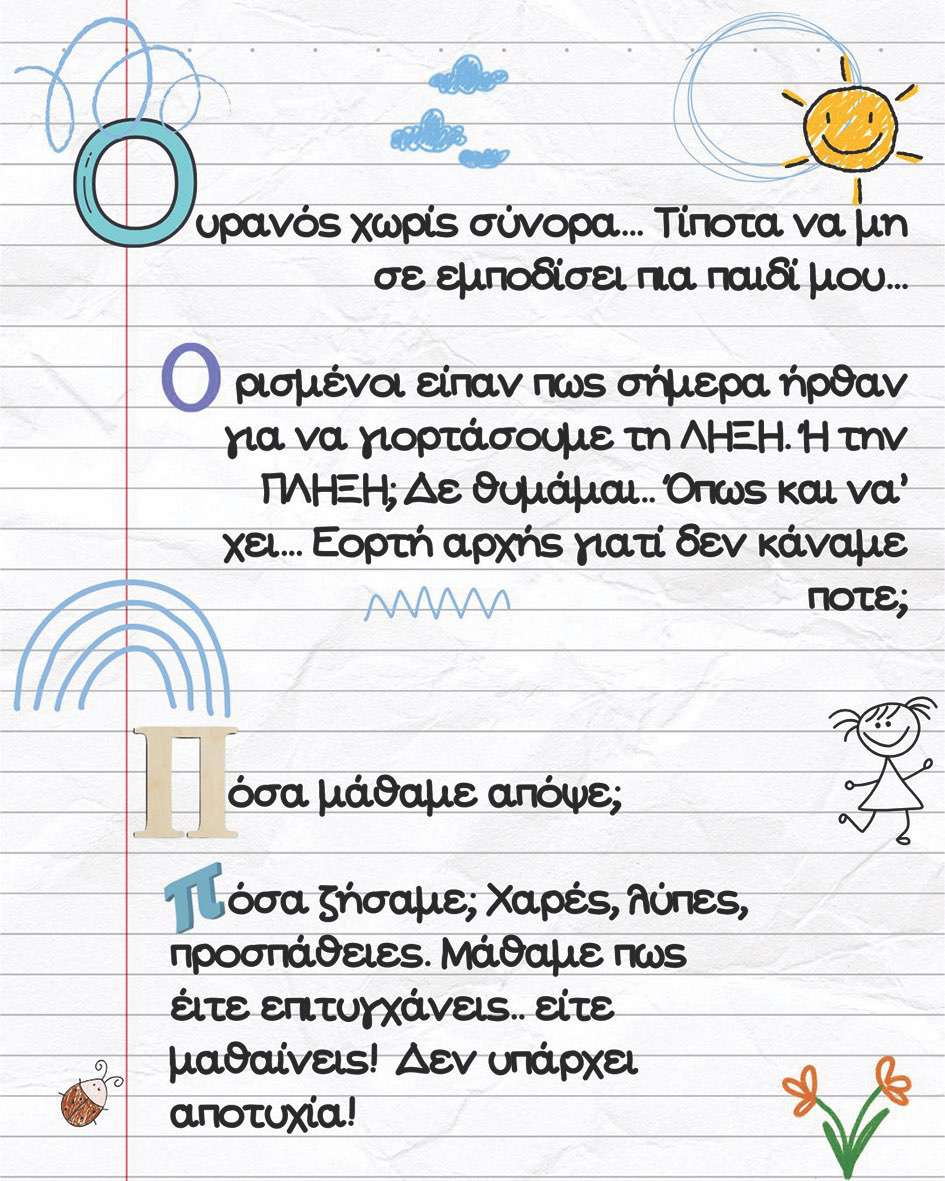 Ουρανός χωρίς σύνορα... Τίποτα να μη
σε εμποδίσει πια παιδί μου...
Ορισμένοι είπαν πως σήμερα ήρθαν
για να γιορτάσουμε τη ΛΗΞΗ. Ή την
ΠΛΗΞΗ; Δε θυμάμαι... Όπως και να'
χει... Εορτή αρχής γιατί δεν κάναμε
ποτε;
Πόσα μάθαμε απόψε;
πόσα ζήσαμε; Χαρές, λύπες,
προσπάθειες. Μάθαμε πως
έιτε επιτυγχάνεις.. είτε
μαθαίνεις! Δεν υπάρχει
αποτυχία!